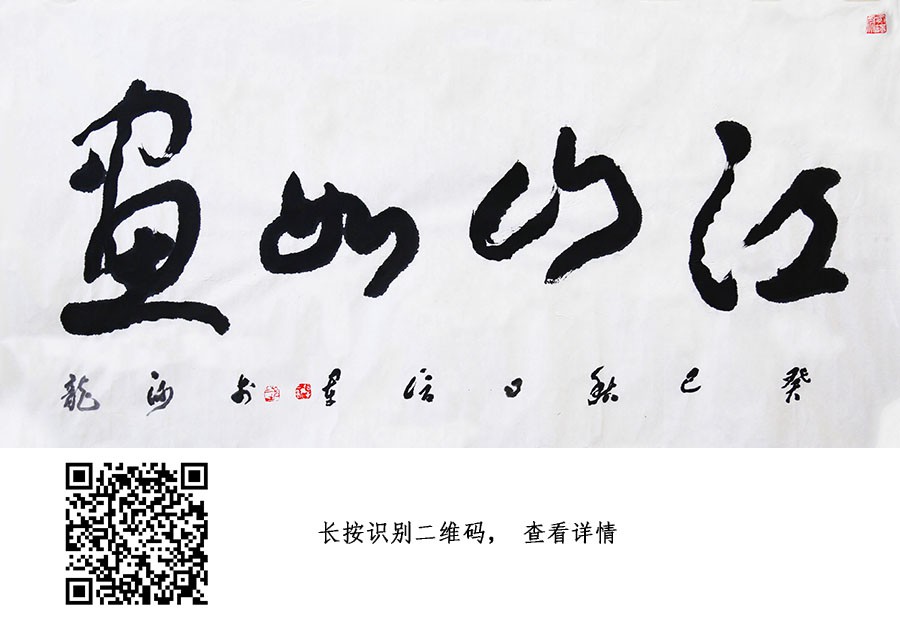 江山如画
癸巳秋日信筆於海龍
长按识别二维码， 查看详情